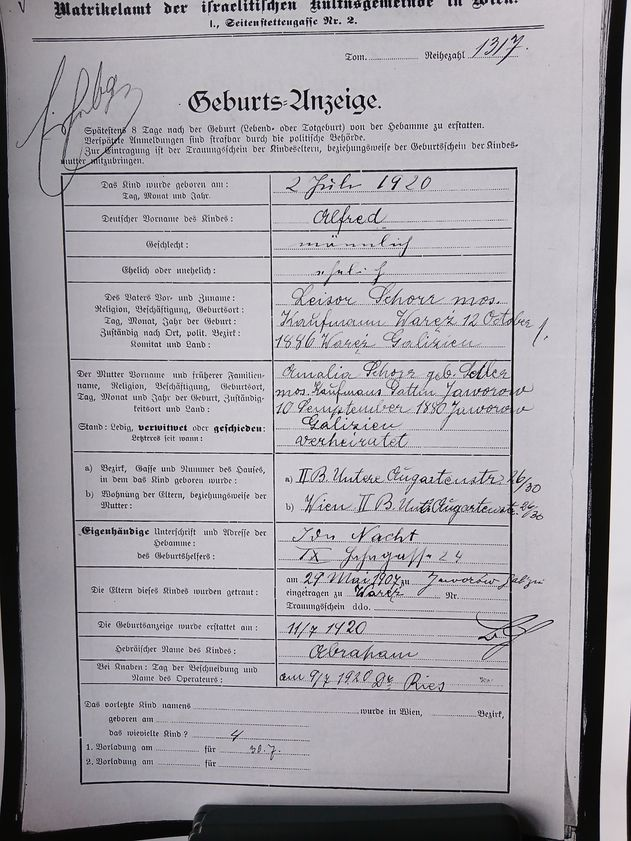 Matrikelamt der israelitischen Kultusgemeinde in Wien.
I., Seitenstettengasse Nr. 2.
Tom. Reihezahl 1317.
Geburts-Anzeige.
Spätestens 8 Tage nach der Geburt (Lebend- oder Totgeburt) von der Hebamme zu erstatten.
Verspätete Anmeldungen sind strafbar durch die politische Behörde.
Zur Eintragung ist der Trauungsschein der Kindeseltern, beziehungsweise der Geburtschein der Kindes-
mutter mitzubringen.
Das Kind wurde geboren am: 2 Juli 1920
Tag, Monat und Jahr.
Deutscher Vorname des Kindes: Alfred
Geschlecht: männlich
Ehelich oder unehelich: ehelich
Des Vaters Vor- und Zuname: Leisor Schorr mos.
Religion, Beschäftigung, Geburtsort: Kaufmann Waręż 12 October
Tag, Monat, Jahr der Geburt:
Zuständig nach Ort, polit. Bezirk: 1886 Waręż Galizien
Komitat und Land:
Der Mutter Vorname und früherer Familien- Amalia Schorr geb.
name, Religion, Beschäftigung, Geburtsort, mos. Kaufmans Gattin Jaworow
Tag, Monat und Jahr der Geburt, Zuständig- 10 Semptember 1880 Jaworow
keitsort und Land: Galizien
Stand: Ledig, verwitwet oder geschieden: verheiratet
Letzteres seit wann:
a) Bezirk, Gasse und Nummer des Hauses, a) II B. Untere Augartenstr. 26/30
in dem das Kind geboren wurde:
b) Wohnung der Eltern, beziehungsweise der b) Wien II B. Unt. Augartenstr. 26/30
Mutter:
Eigenhändige Unterschrift und Adresse der Nacht
Hebamme:
des Geburtshelfers: IX 24
Die Eltern dieses Kindes wurden getraut: am 29 Mai 1907 zu Jaworów
eingetragen zu Waręż Nr.
Trauungsschein ddo.
Die Geburtsanzeige wurde erstattet am: 11/7 1920
Hebräischer Name des Kindes: Abraham
Bei Knaben: Tag der Beschneidung und am 9/7 1920 Dr Ries
Name des Operateurs:
Das vorletzte Kind namens wurde in Wien, Bezirk,
geboren am
das wievielte Kind? 4
1. Vorladung am für 30.7.
2. Vorladung am für